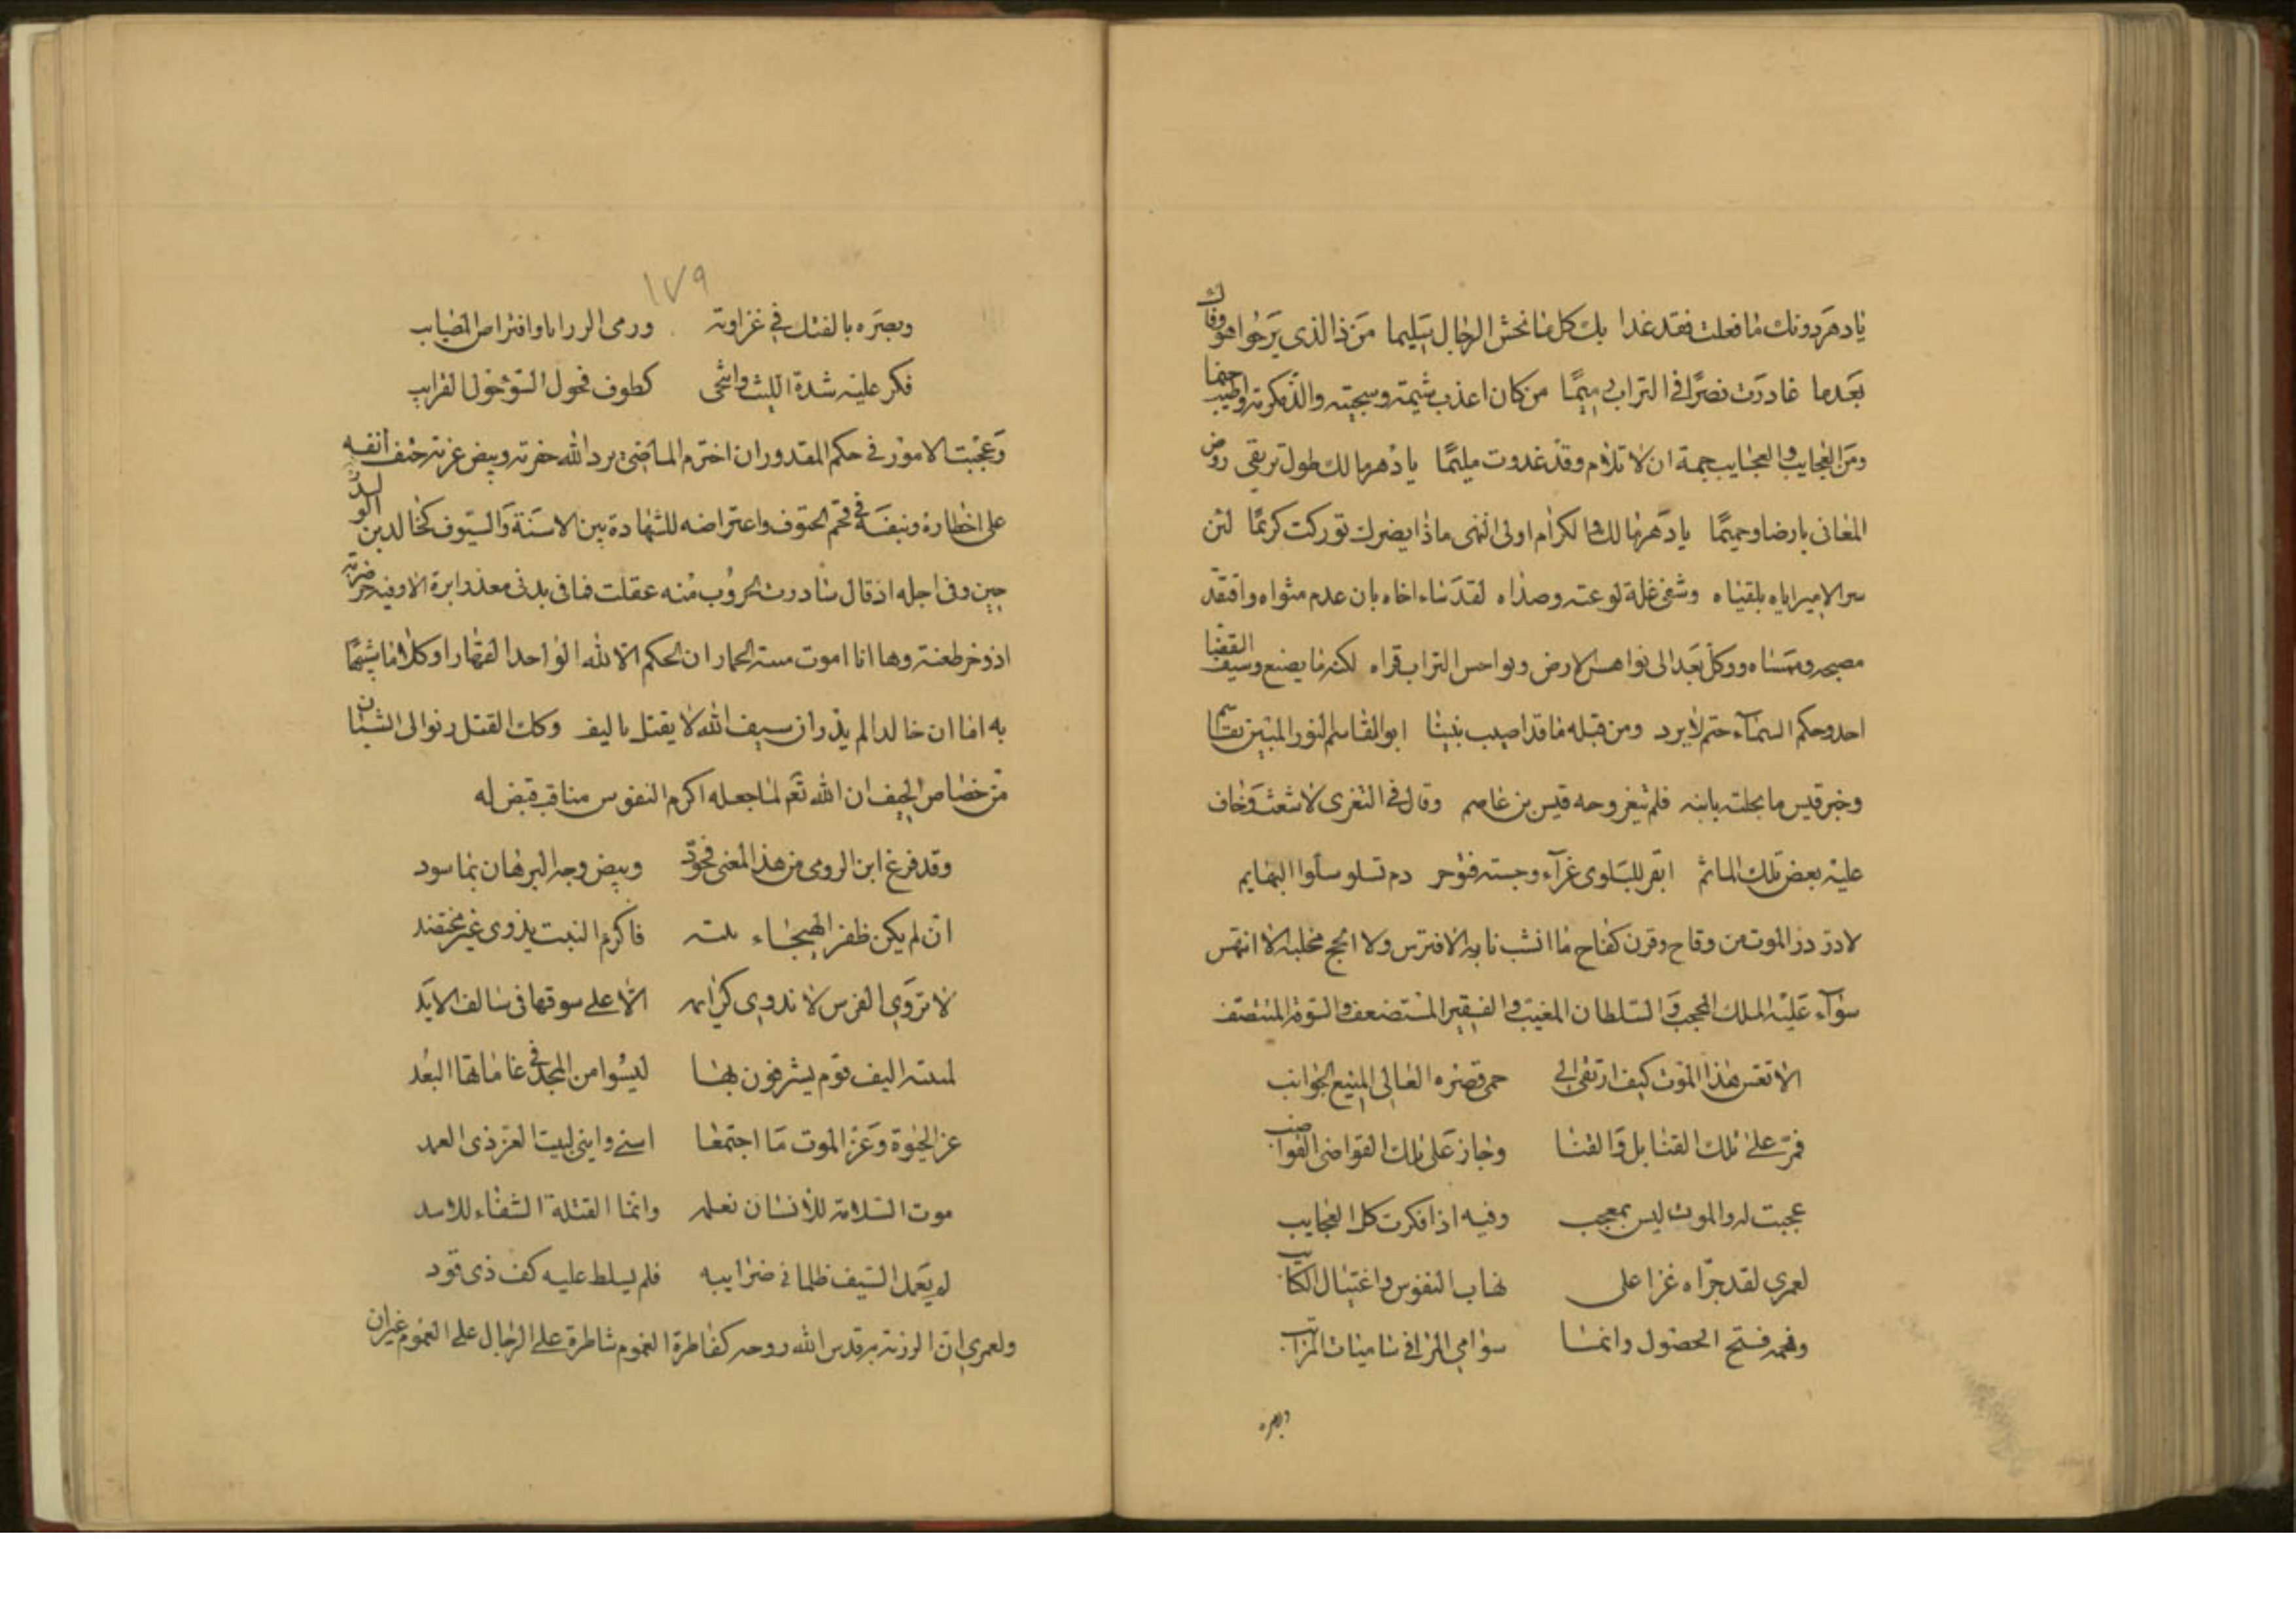 يا دهر دونك ما فعلت فقد غدا بك كل فاحش الرجال سليما من ذا الذي يرجوا هواك وفا
بعدما غادرت نصرا في التراب رميما من كان اعذب شيمة وسجيته والذ مكرمة واطيب خيما
ومن العجايب والعجايب جمة ان لا تلام وقد غدوت مليما يا دهر ما لك طول تربقى روض
المغانى بارضا وحميما يا دهر ما لك والكرام اولى النهى ماذا يضرك لو تركت كريما لئن
سر الامير اياه بلقياه وشفى غلة لوعته وصداه لقد ساء اخاه بان عدم مثواه وافتقد
مصبحه وممساه ووكل بعد الى نواهس الارض ونواحس التراب قراه لكنه ما يصنع وسيف القضا
احد وحكم السماء حتم لا يرد ومن قبله ما قد اصيب نبينا ابو القاسم النور المبين بقاسم
وخبر قيس ما بجلت بابنه فلم تيغر وجه قيس بن عاصم وقال في التعزى لاشعث وخاف
عليه بعض تلك الماثم اتصبر للبلوى عزآء وحسبة فتوجر ام تسلو سلوا البهايم
لا در در الموت من وقاح وقرن كفاح ما انشب نابه الا افترس ولا انجح مخلبه الا انتهس
سوآء عليه الملك المحجب والسلطان المغيب والفقير المستضعف والسوقة المنتصف
الا تعس هذا الموت كيف ارتقى الى حمى قصره العالى المنيع الجوانب
فمر على تلك القنابل والقنا وجاز على تلك القواضى القواضب
عجبت له والموت ليس بمعجب وفيه اذا فكرت كل العجايب
لعمرى لقد جراه غزا على نهاب النفوس واغتيال الكتايب
وفهمه فتح الحصول وانما سوامى المرافى ساميات المراتب
وبصره
١٧٩
وبصره بالفتك في غزاوته ورمى الرزايا وافتراص المصايب
فكر عليه شدة الليث وانتحى كطوف فحول الشوخول الغرايب
وعجبت الامور في حكم المقدور ان اخترم الماضى برد الله حفرته وبيض غرته حتف انفه
على اخطاره ونفسه في قحم الحتوف واعتراضه للشهادة بين الاسنة والسيوف كخالد بن الوليد
حين وفى اجله اذ قال شادرت الحروب منه عقلت فما فى بدنى مغرز ابرة الا وفيه ضربة
او وخز طعنة وها انا اموت ميتة الحمار ان الحكم الا لله الواحد القهار او كلاما شبيها
به اما ان خالدا لم يذر ان سيف الله لا يقتل بالسيف وكلت القتل رنوا الى الشبان
من خصاص الجيف ان الله تعم لما جعله اكرم النفوس مناقب قيض له
وقد فرغ ابن الرومى من هذا المعنى فجود وبيض وجه البرهان بما سود
ان لم يكن ظفر الهيجاء ملته فاكرم النبت يذوى غير مختضد
لا تروى الفرس لا تذوى كرائمه الا على سوقها فى سالف الابد
لميتة السيف قوم يشرفون بها ليسوا من المجد في غاياتها البعد
عز الحيوة وعز الموت ما اجتمعا اسنى وابنى لبيت العز ذى العمد
موت السلامة للانسان نعلمه وانما القتلة الشفاء للاسد
لم يعمل السيف ظلما فى ضرايبه فلم يسلط عليه كف ذى قود
ولعمرى ان الرزية به قدس الله روحه كفاطرة الغموم شاطرة على الرجال على العموم غير ان